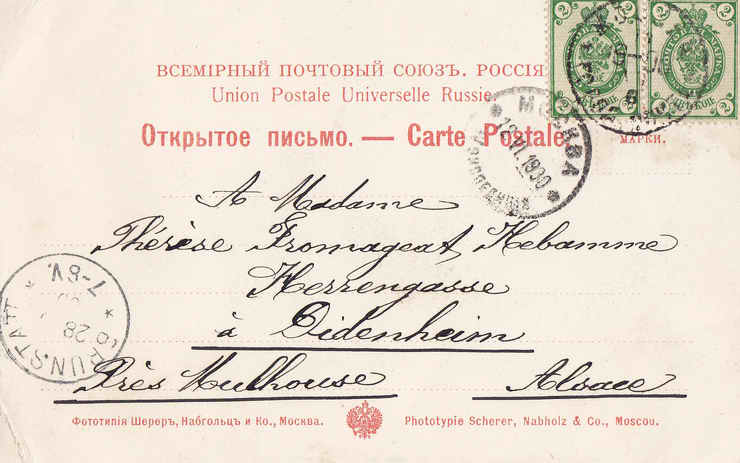 ВСЕМІРНЫЙ ПОЧТОВЫЙ СОЮЗЪ. РОССІЯ
Union Postale Universelle Russie.
Открытое письмо. — Carte Postale.
МАРКИ.
МОСКВА
A Madame
Thérèse Fromageat, Hebamme
Herrengasse
à Didenheim
Près Mulhouse Alsace
7-8V.
28
BRUNSTATT
Фототипія Шереръ, Набгольцъ и Ко., Москва.
Phototypie Scherer, Nabholz & Co., Moscou.